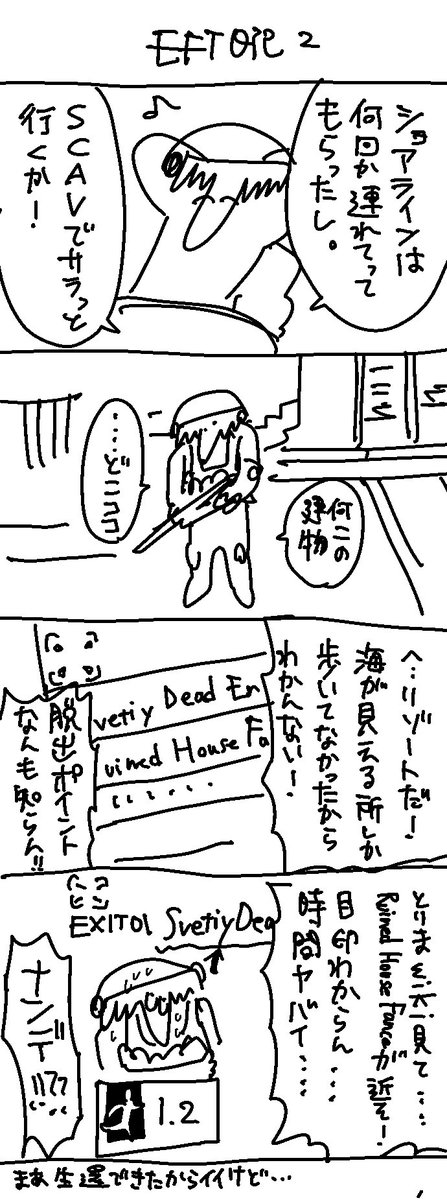 EFT 01é 2
ショアラインは
何回か連れてって
もらったし。
SCAVでサラっと
行くか！
何この
建物
....どこココ
へ..リゾートだ！
海が見える所しか
歩いてなかったから
わかんない！
vetiy Dead En
uined House Fa
脱出ポイント
なんも知らん!!
とりま
見て....
Ruined House Fenceが近そ！
目印わからん...
時間ヤバイ....
EXIT01 SvetiyDea
ナンデ!!??
1.2
まあ生還できたからイイけど...